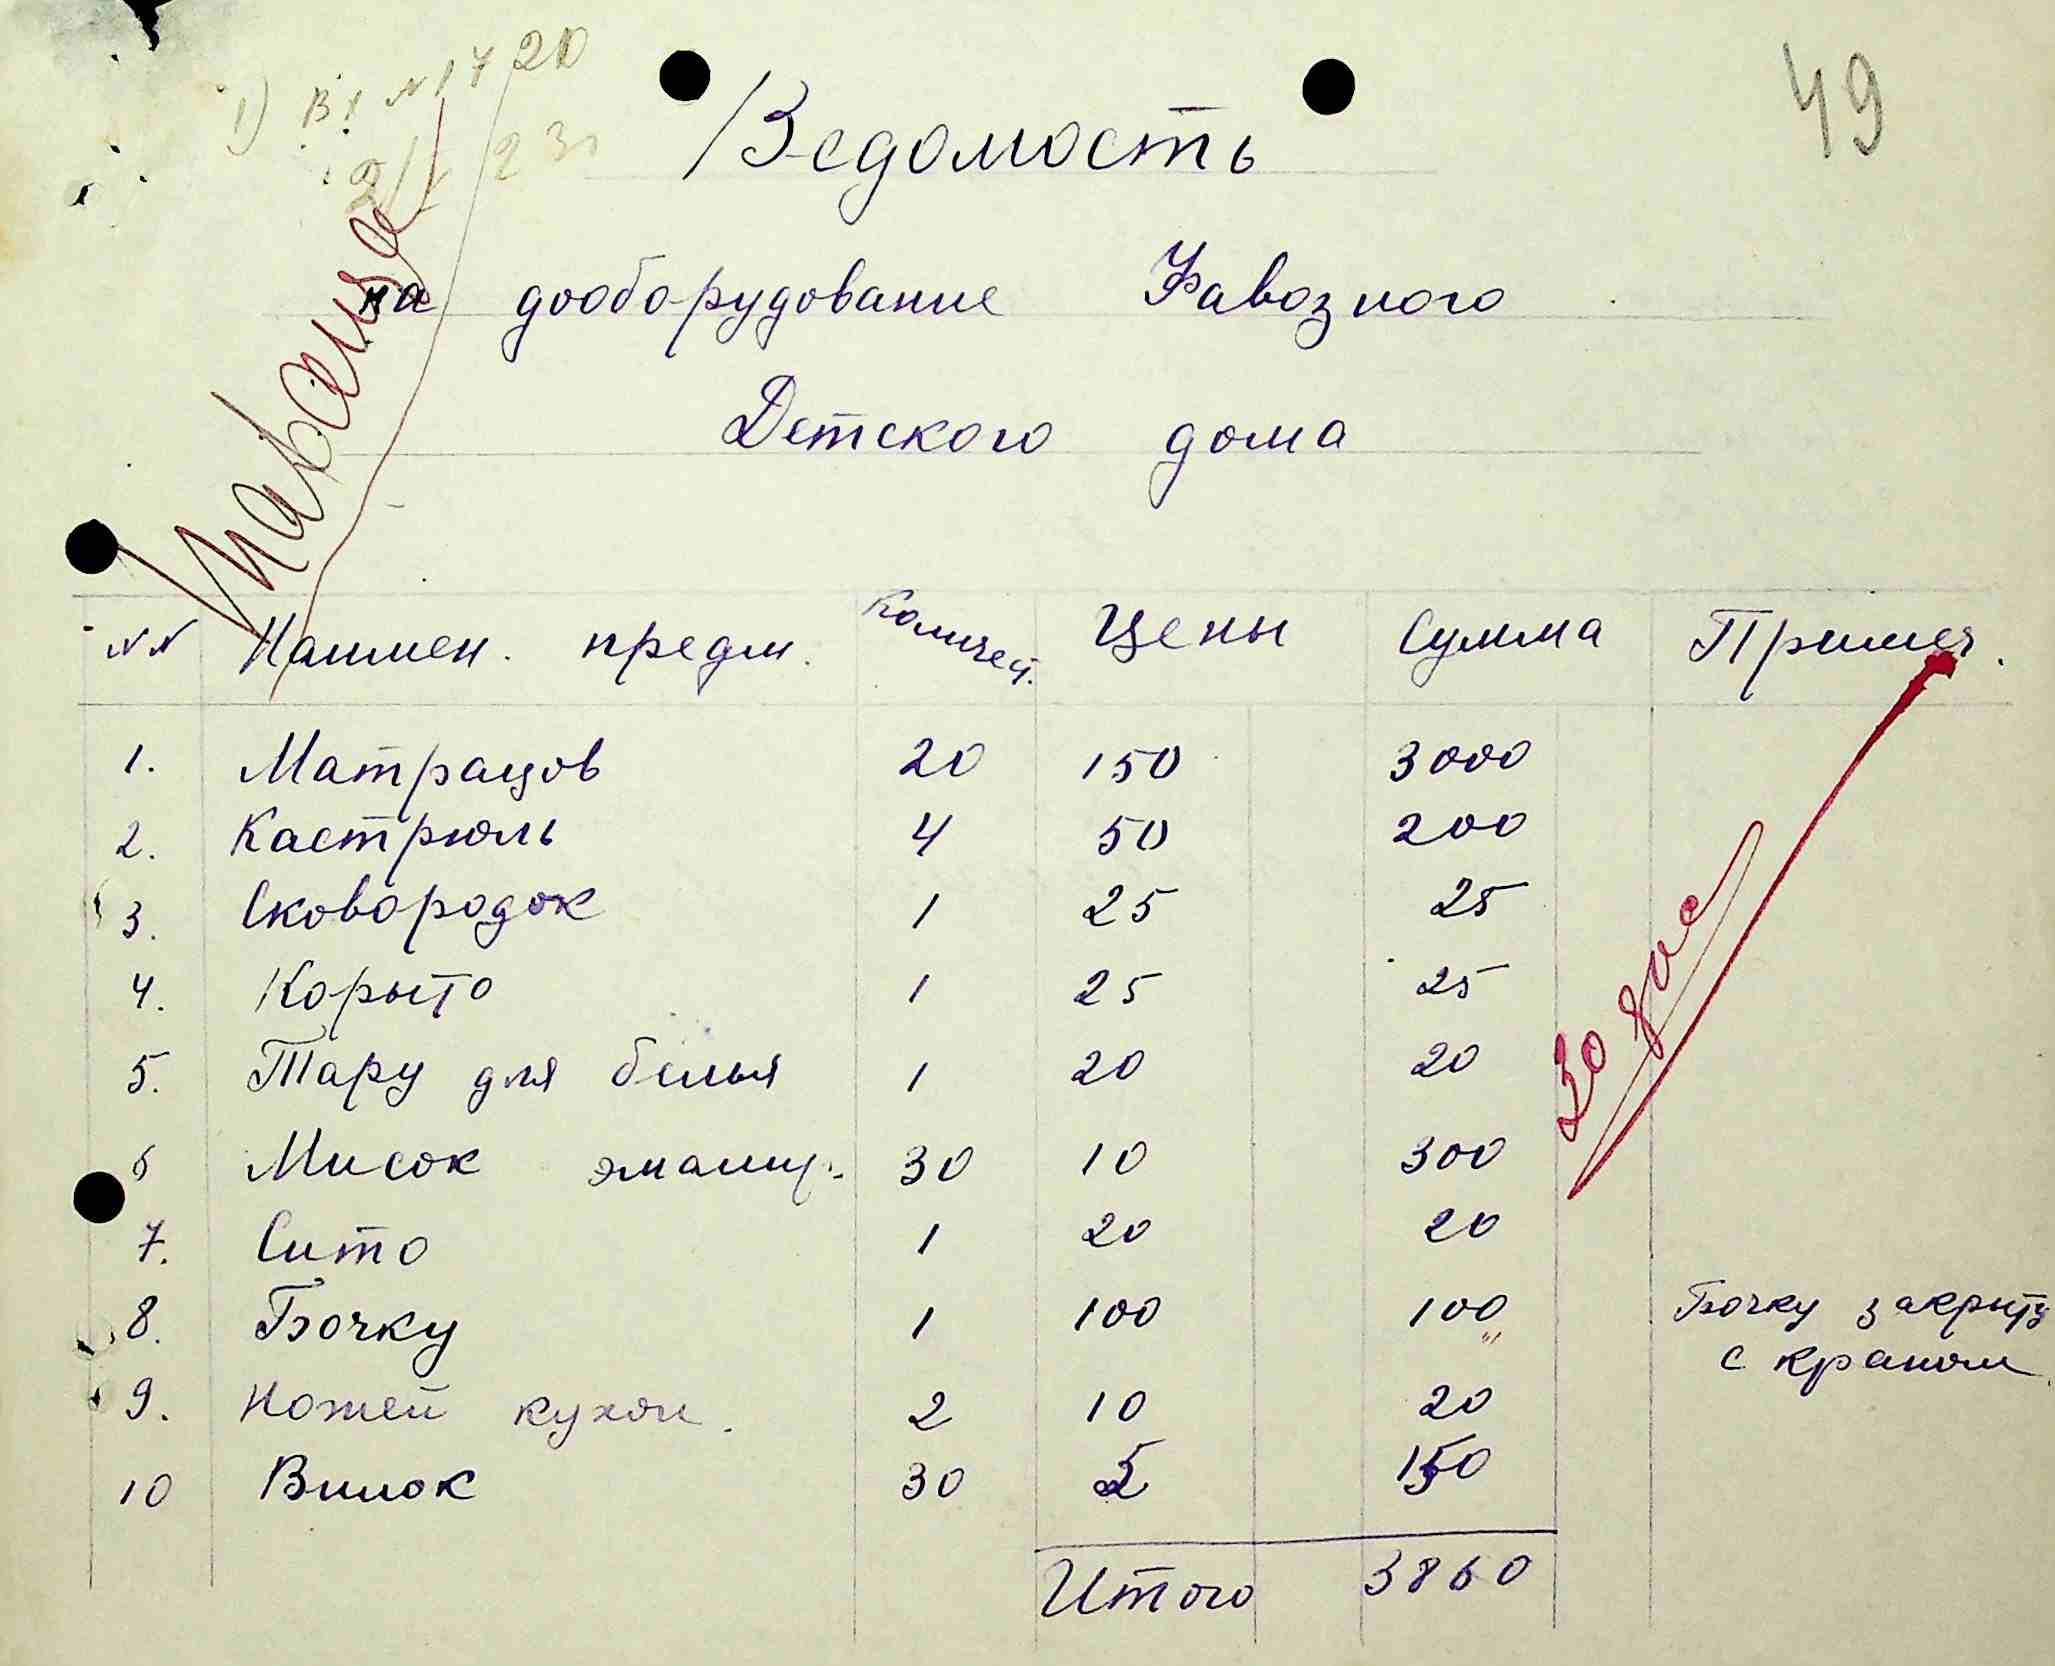 49
1) Вх №1720
Ведомость
на дооборудование Фавозного
Детского дома
№№ Наимен. предм. Количест. Цены Сумма Примеч.
1. Матрацов 20 150 3000
2. Кастрюль 4 50 200
3. Сковородок 1 25 25
4. Корыто 1 25 25
5. Тару для белья 1 20 20
6 Мисок эмалир. 30 10 300
7. Сито 1 20 20
8. Бочку 1 100 100 Бочку закрыту
с краном.
9. Ножей кухон. 2 10 20
10 Вилок 30 5 150
Итого 3860